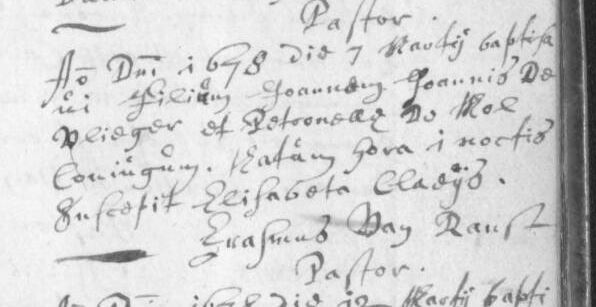 Pastor.
Ao Dni 1678 die 7 Martij baptisa
vi filium Joannem Joannis De
Vlieger et Petronellę De Mol
Coniugum. Natum hora 1 noctis
Suscepit Elisabeta Claeÿs.
Erasmus Van Ranst
Pastor.
Ao Dni 1678 die Martij bapti